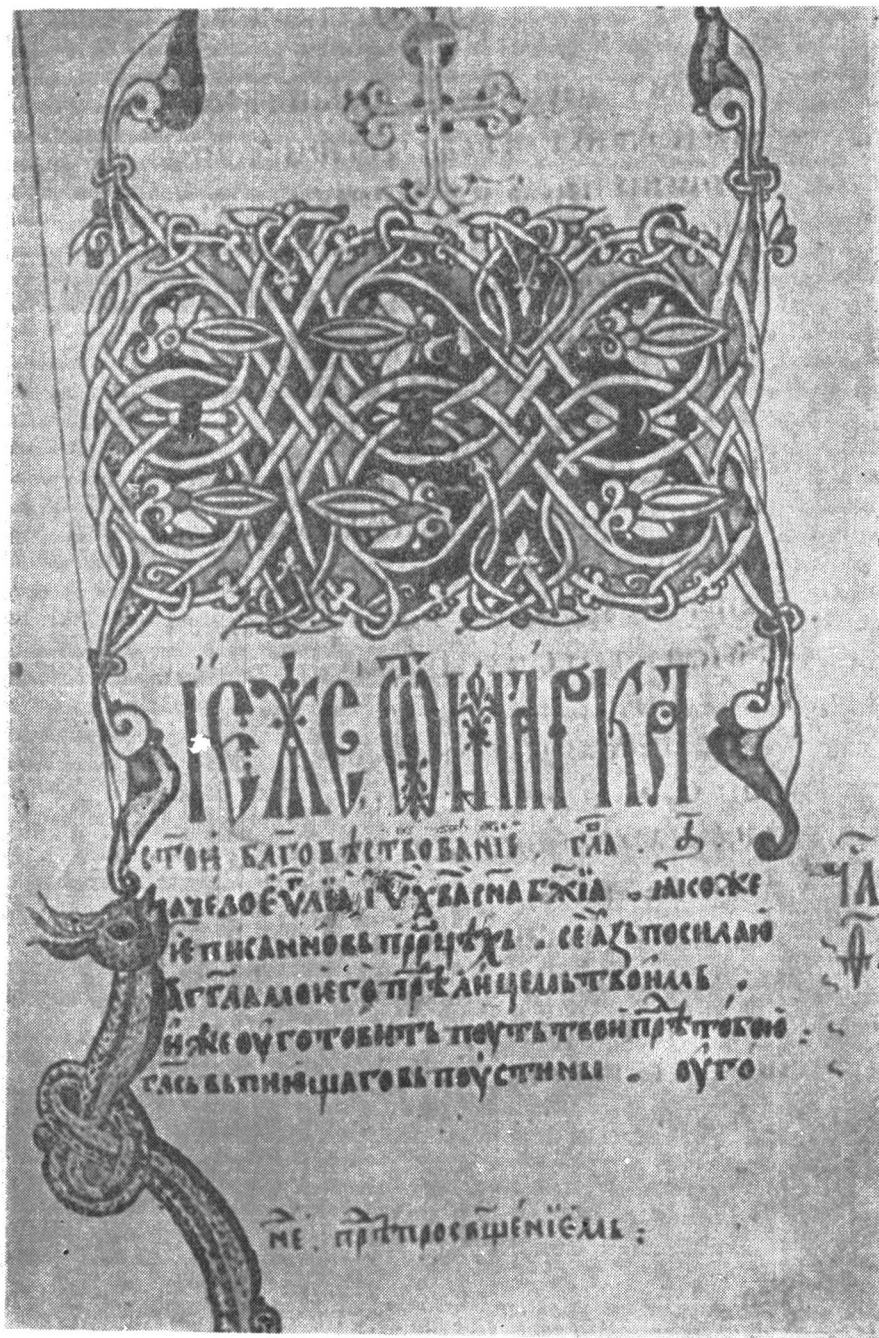 ІЕЖЕ Ѿ МАРКА
с̑тои бл҃говѣствованіе . гл҃а . а҃ .
зачело еѵ҃ліа іѵ҃ х҃ва сн҃а бж҃іа . ꙗкоже
ѥ писанно въ прⷪ҇рцѣхъ . се азъ посилаю
аг҃гла моѥго прѣⷣ лицемъ твоимь .
иже оуготовить поуть твои прѣⷣ тобою :
глⷭ҇ъ въпиющаго въ поустини . оуго
не прѣⷣ просвѣщеніемь :